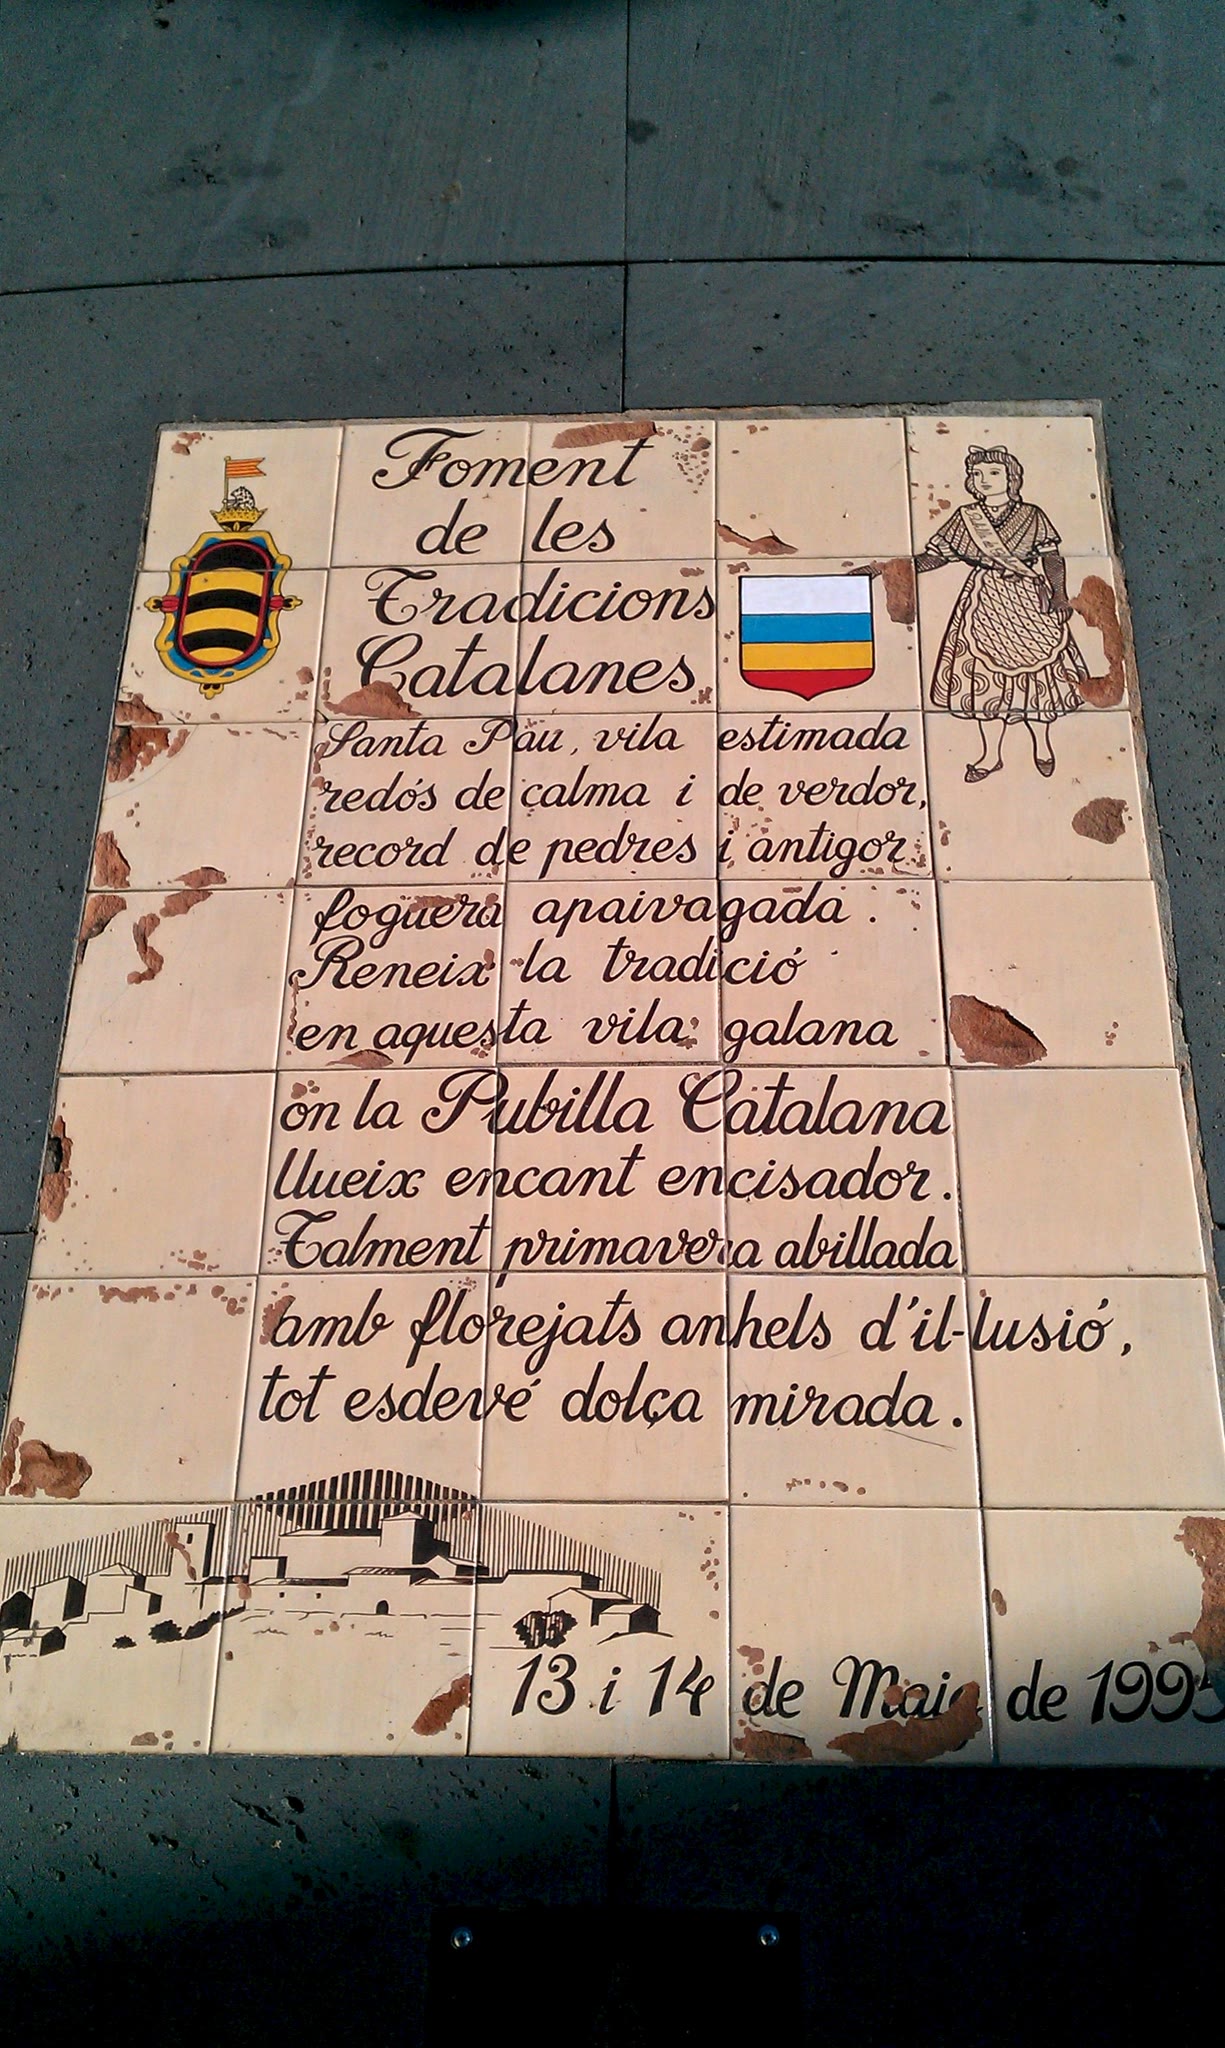 Foment
de les
Tradicions
Catalanes
Santa Pau, vila estimada
redós de calma i de verdor,
record de pedres i antigor
foguera apaivagada.
Reneix la tradició
en aquesta vila galana
on la Pubilla Catalana
llueix encant encisador.
Talment primavera abillada
amb florejats anhels d'il-lusió,
tot esdevé dolça mirada.
13 i 14 de Maig de 1995